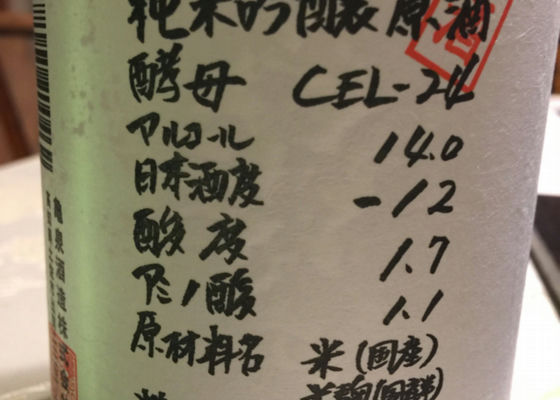 純米吟醸原酒
酵母 CEL-24
アルコール 14.0
日本酒度 -12
酸度 1.7
アミノ酸 1.1
原材料名 米(国産)
米麹(国産)
亀泉酒造株式会社